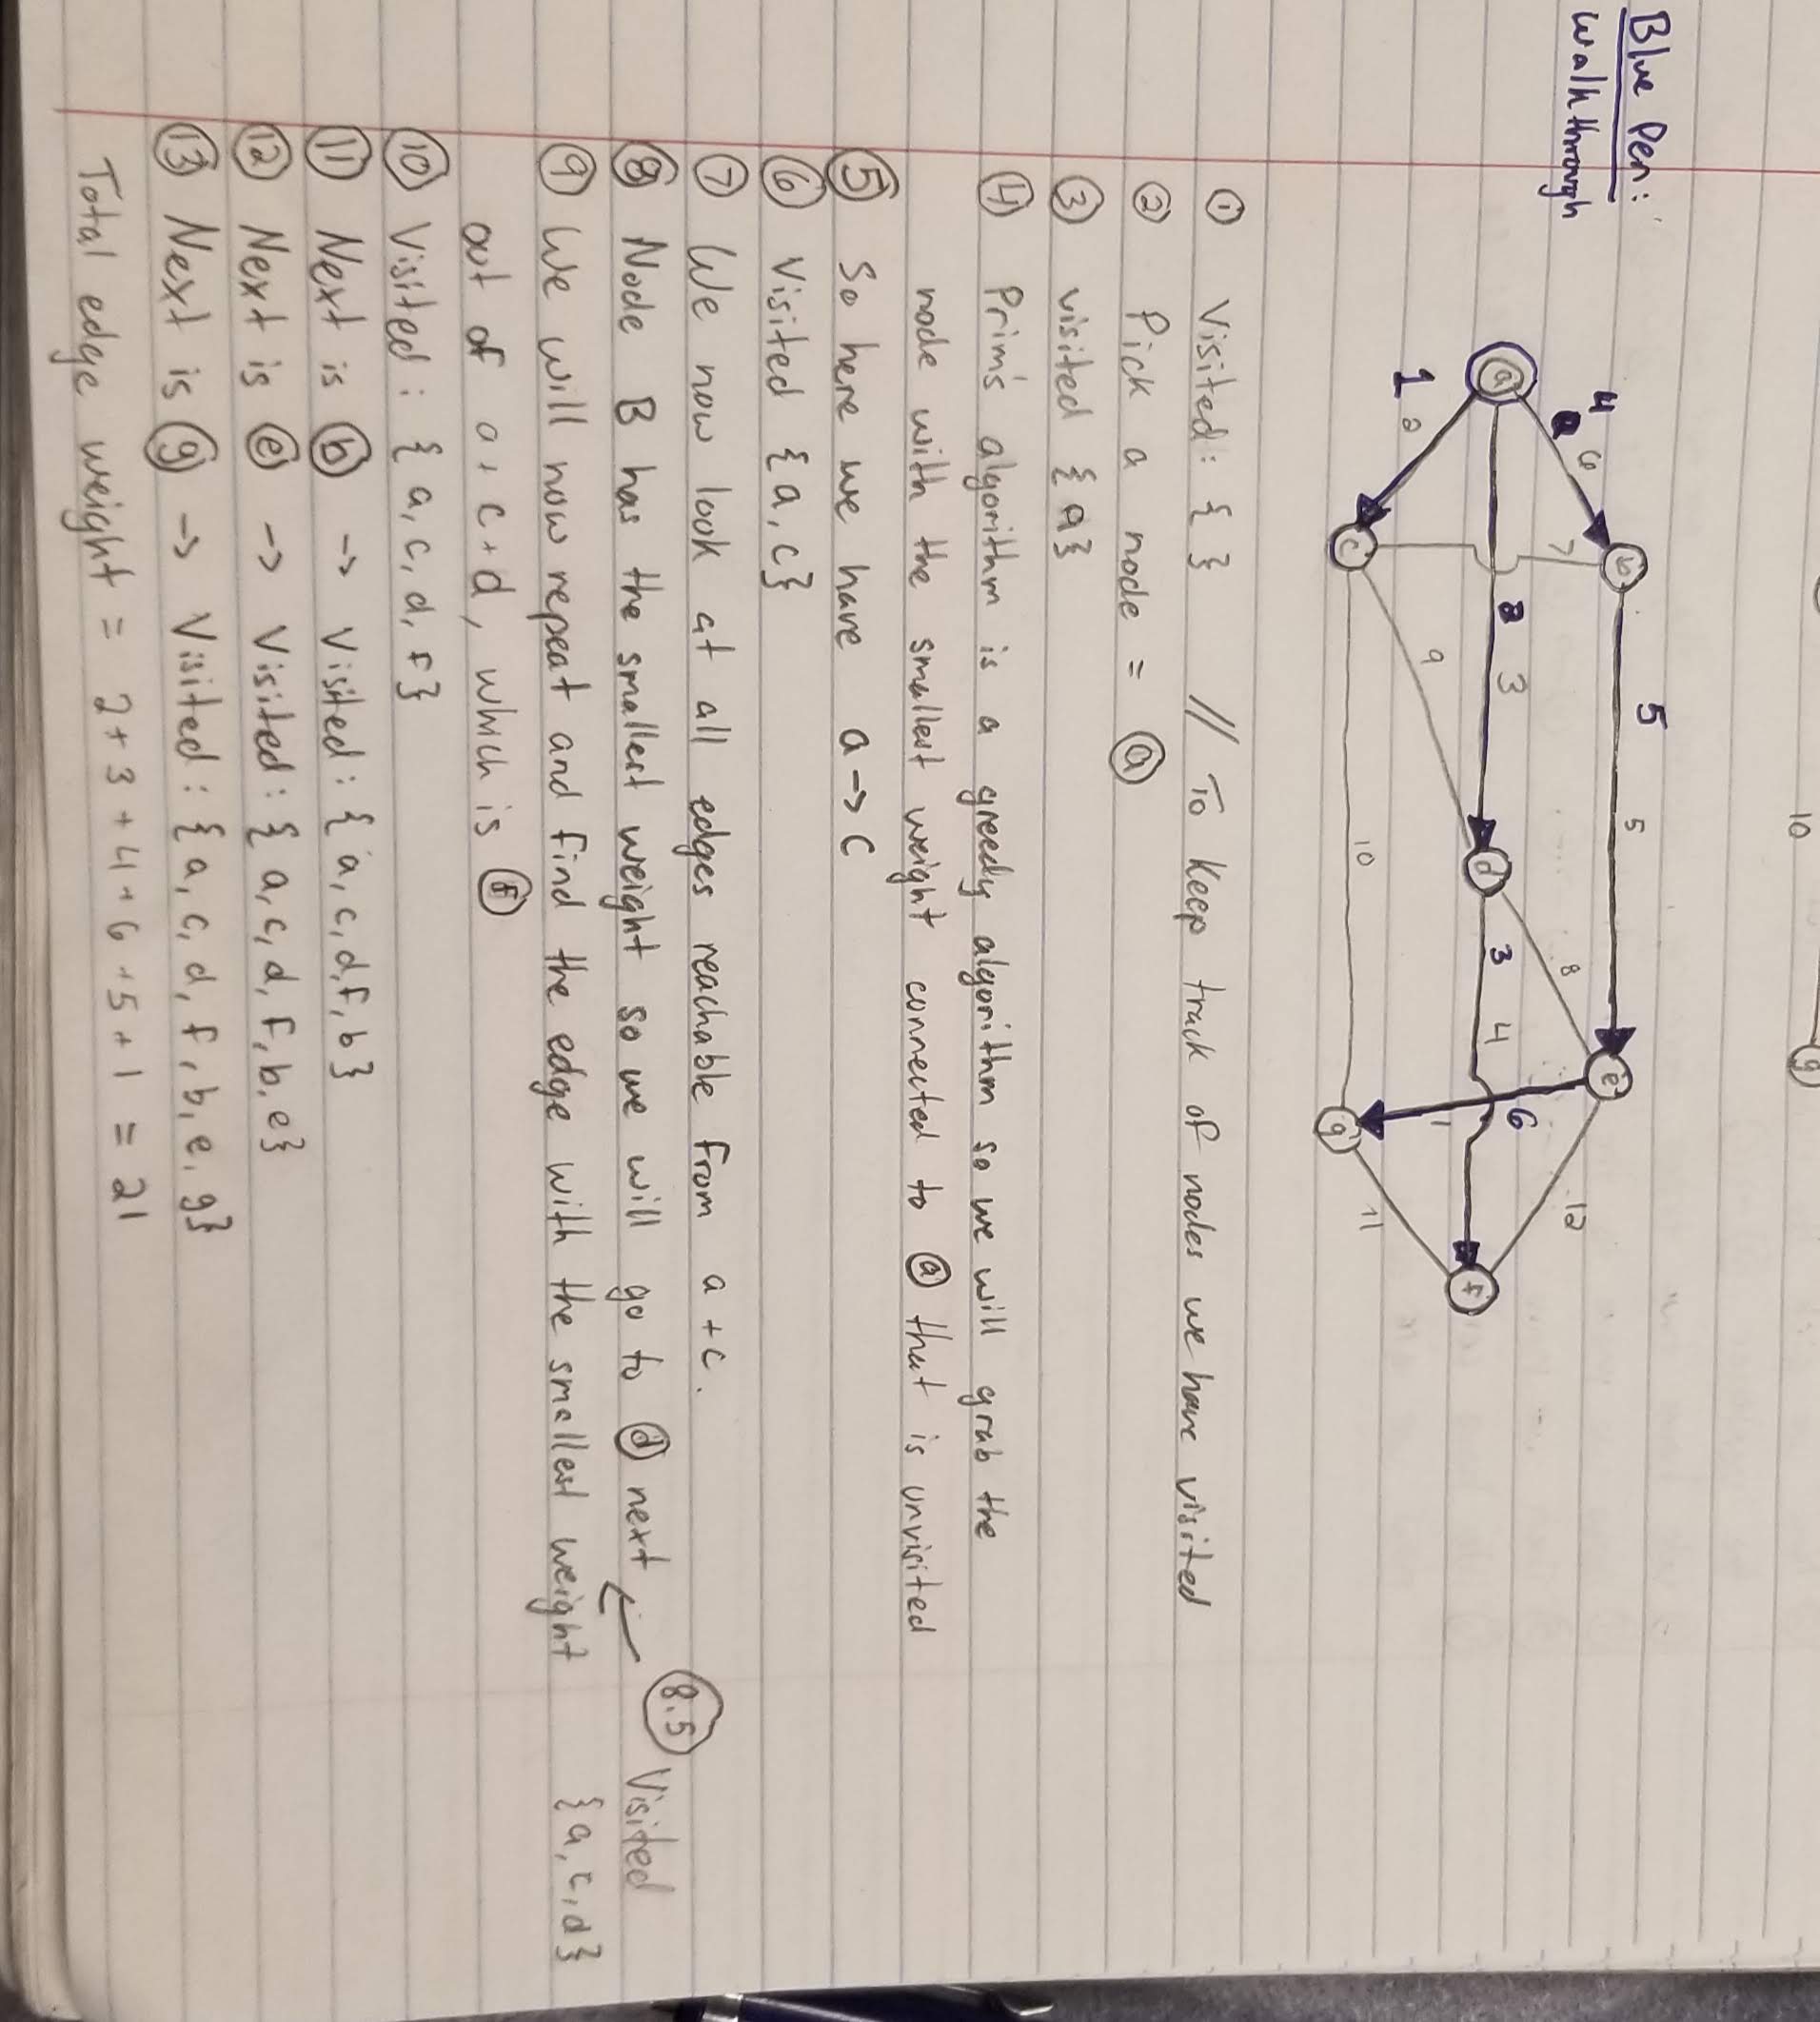 10 g
Blue Pen:
Walkthrough
5
b 5 e
4 6
7 8 12
a 2 3 d 3 4 6 f
1 2 9 1
c 10 g 11
① Visited: { } // To Keep track of nodes we have visited
② Pick a node = ⓐ
③ visited {a}
④ Prim's algorithm is a greedy algorithm so we will grab the
node with the smallest weight connected to ⓐ that is unvisited
⑤ So here we have a -> c
⑥ Visited {a, c}
⑦ We now look at all edges reachable from a + c.
⑧ Node B has the smallest weight so we will go to ⓓ next
8.5 Visited
{a, c, d}
⑨ We will now repeat and find the edge with the smallest weight
out of a + c + d, which is ⓕ
⑩ Visited: { a, c, d, f}
⑪ Next is ⓑ -> Visited: { a, c, d, f, b }
⑫ Next is ⓔ -> Visited: { a, c, d, f, b, e}
⑬ Next is ⓖ -> Visited: { a, c, d, f, b, e, g}
Total edge weight = 2 + 3 + 4 + 6 + 5 + 1 = 21